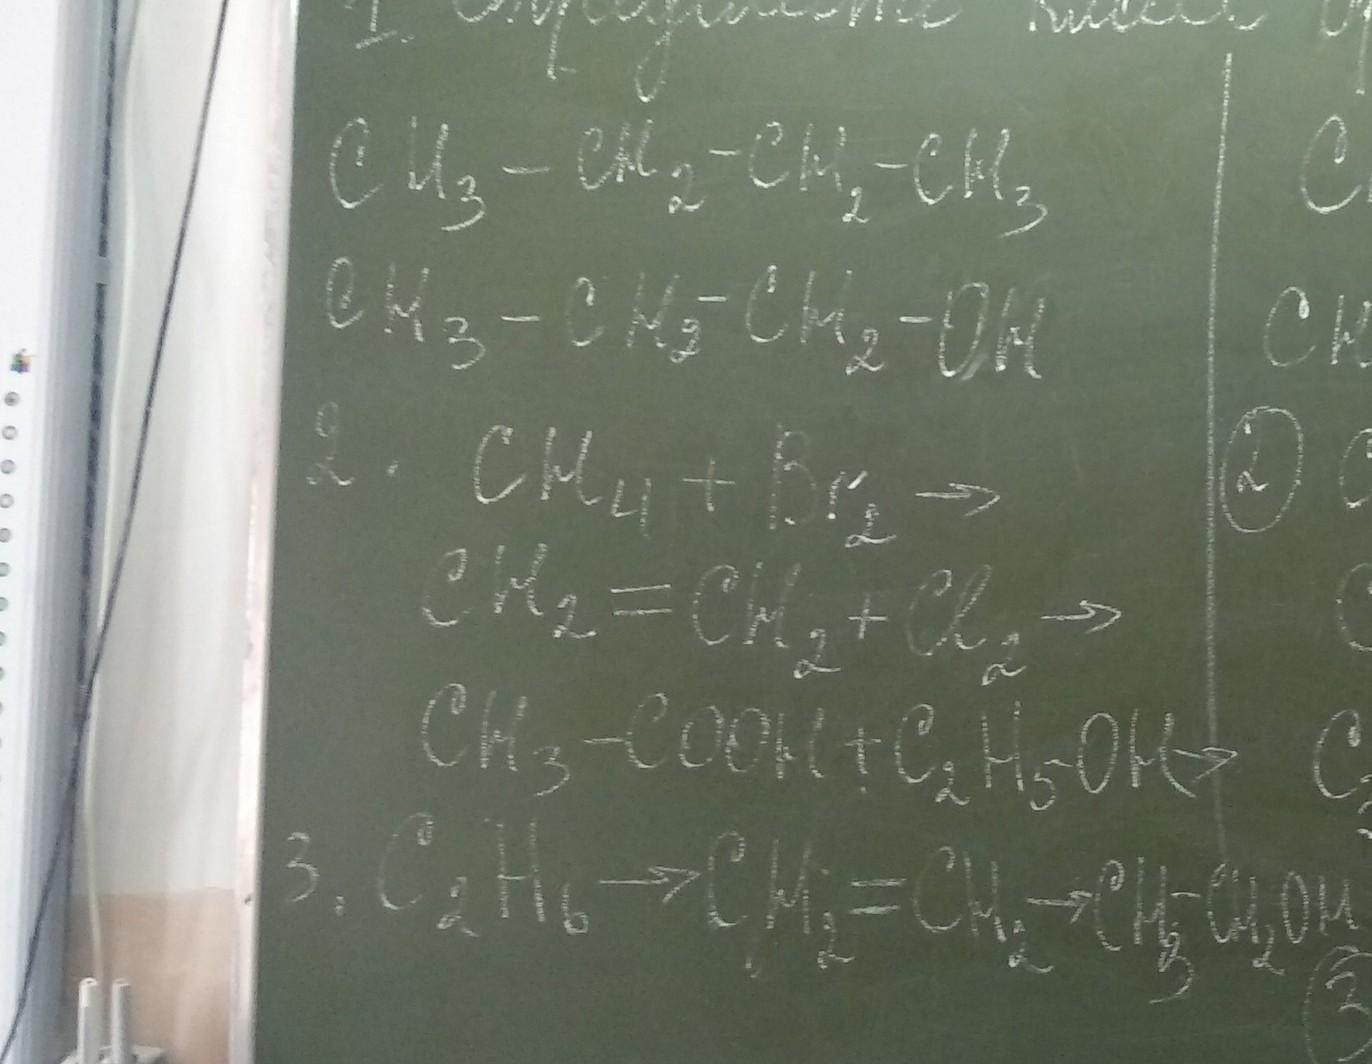 1. Определите класс
CH₃ – CH₂ – CH₂ – CH₃
CH₃ – CH₂ – CH₂ – OH
2. CH₄ + Br₂ →
CH₂ = CH₂ + Cl₂ →
CH₃ – COOH + C₂H₅OH →
3. C₂H₆ → CH₂ = CH₂ → CH₃ – CH₂OH
C
CH
2 C
C
C₂